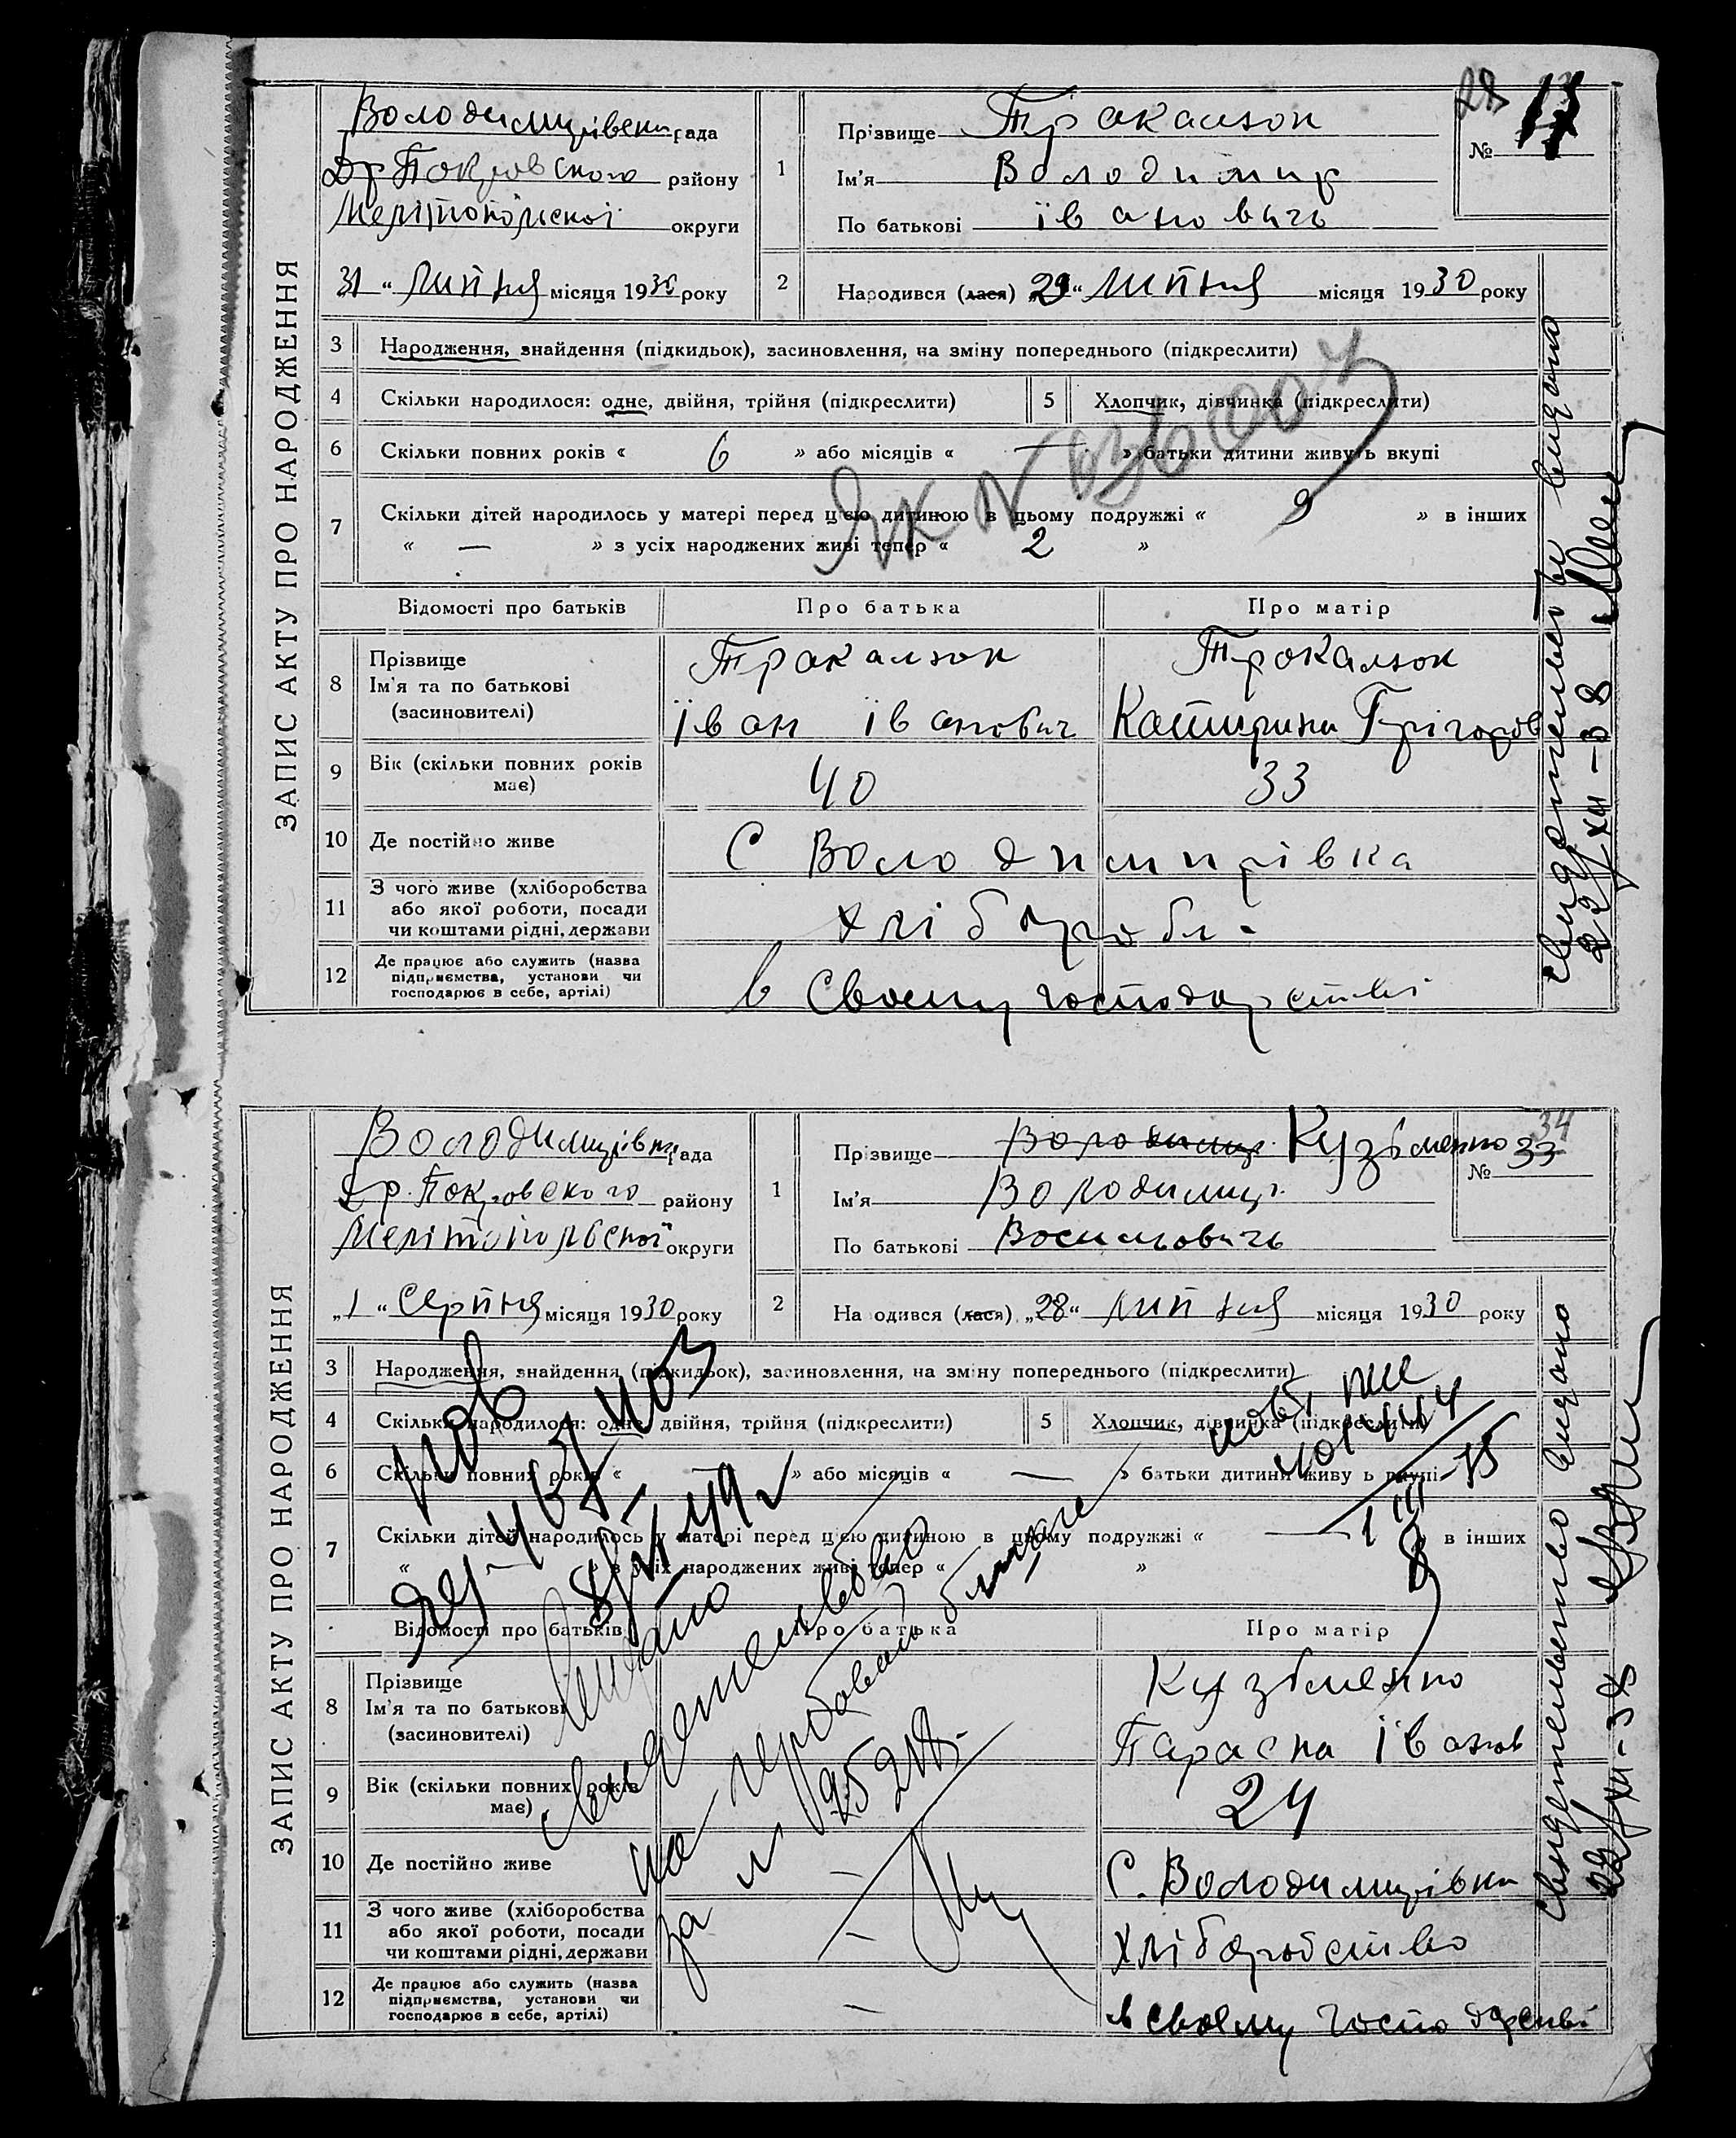 ЗАПИС АКТУ ПРО НАРОДЖЕННЯ
Володимирівська рада
Др Покровського району
Мелітопольської округи
31 " Липня місяця 1930 року
28
№
1 Прізвище Тракалюк
Ім'я Володимир
По батькові івановичь
2 Народився (лася) „29" Липня місяця 1930 року
3 Народження, знайдення (підкидьок), засиновлення, на зміну попереднього (підкреслити)
4 Скільки народилося: одне, двійня, трійня (підкреслити)
5 Хлопчик, дівчинка (підкреслити)
6 Скільки повних років « 6 » або місяців « — » батьки дитини живуть вкупі
7 Скільки дітей народилось у матері перед цією дитиною в цьому подружжі « 9 » в інших
« — » з усіх народжених живі тепер « 2 »
Відомості про батьків Про батька Про матір
8 Прізвище
Ім'я та по батькові
(засиновителі)
Тракалюк
Іван івановичь
Трокалюк
Катирина Грігоров
9 Вік (скільки повних років
має)
40
33
10 Де постійно живе
С Володимирівка
11 З чого живе (хліборобства
або якої роботи, посади
чи коштами рідні, держави
хлібороб
12 Де працює або служить (назва
підприємства, установи чи
господарює в себе, артілі)
в своему господарстві
Свидетельство выдано
22/XII-38
ЗАПИС АКТУ ПРО НАРОДЖЕННЯ
Володимирівка рада
Др. Покровського району
Мелітопольської округи
„1 " Серпня місяця 1930 року
34
№ 33
1 Прізвище Володимир Кузьменко
Ім'я Володимир
По батькові Восильовичь
2 Народився (лася) „28" липня місяця 1930 року
3 Народження, знайдення (підкидьок), засиновлення, на зміну попереднього (підкреслити)
4 Скільки народилося: одне, двійня, трійня (підкреслити)
5 Хлопчик, дівчинка (підкреслити)
6 Скільки повних років « — » або місяців « — » батьки дитини живуть вкупі
7 Скільки дітей народилось у матері перед цією дитиною в цьому подружжі « — » в інших
« » з усіх народжених живі тепер « »
Відомості про батьків Про батька Про матір
8 Прізвище
Ім'я та по батькові
(засиновителі)
Кузьменко
Параска Іванов
9 Вік (скільки повних років
має)
24
10 Де постійно живе
—
С. Володимирівка
11 З чого живе (хліборобства
або якої роботи, посади
чи коштами рідні, держави
—
хліборобство
12 Де працює або служить (назва
підприємства, установи чи
господарює в себе, артілі)
—
в своему господарстві
Выдано
свидетельство
за №
Свидетельство выдано
22/XII-38